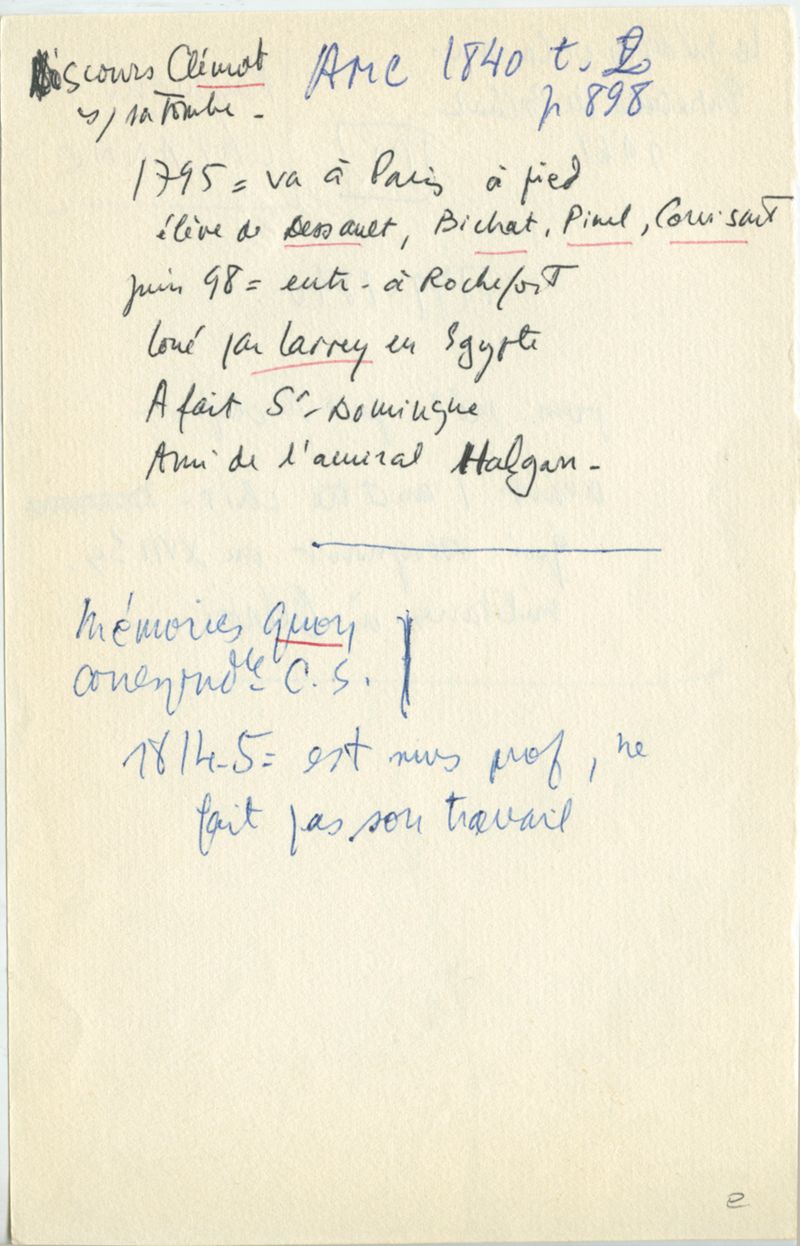 Discours Clémot AMC 1840 t. 2
s/ sa Tombe - p 898
1795 = va à Paris à pied
élève de Dessault, Bichat, Pinel, Corvisart
juin 98 = entr - à Rochefort
loué par Larrey en Egypte
A fait St-Domingue
Ami de l'amiral Halgan -
Mémoires Quoy
correspond.le C. S.
1814-5 = est nms prof, ne
fait pas son travail
e